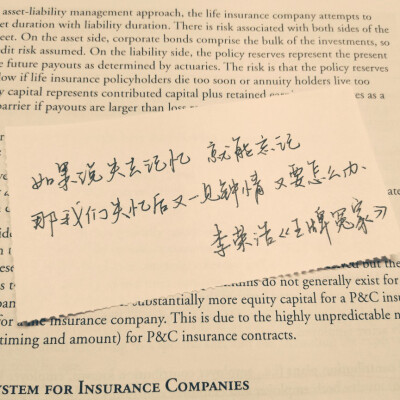 asset-liability management approach, the life insurance company attempts to
et duration with liability duration. There is risk associated with both sides of the
eet. On the asset side, corporate bonds comprise the bulk of the investments, so
dit risk assumed. On the liability side, the policy reserves represent the present
e future payouts as determined by actuaries. The risk is that the policy reserves
ow if life insurance policyholders die too soon or annuity holders live too
y capital represents contributed capital plus retained es as a
barrier if payouts are larger than
如果说失去记忆 就能忘记
那我们失忆后又一见钟情 又要怎么办
李荣浩《王牌冤家》
but the
ms do not generally exist for
ubstantially more equity capital for a P&C insu
for insurance company. This is due to the highly unpredictable n
timing and amount) for P&C insurance contracts.
YSTEM FOR INSURANCE COMPANIES